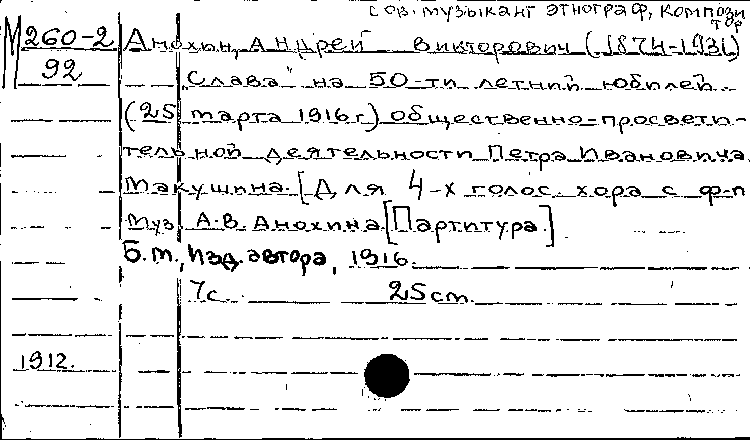 сов. музыкант этнограф, композитор
М 260-2 Анохин, Андрей Викторович (1874-1931)
92 "Слава" на 50-ти летний юбилей
(25 марта 1916 г.) общественно-просвети-
тельной деятельности Петра Ивановича
Макушина. [Для 4-х голос. хора с ф-п
муз. А.В. Анохина [Партитура.]
Б.м., Изд. автора, 1916.
7с. 25 cm.
1912.